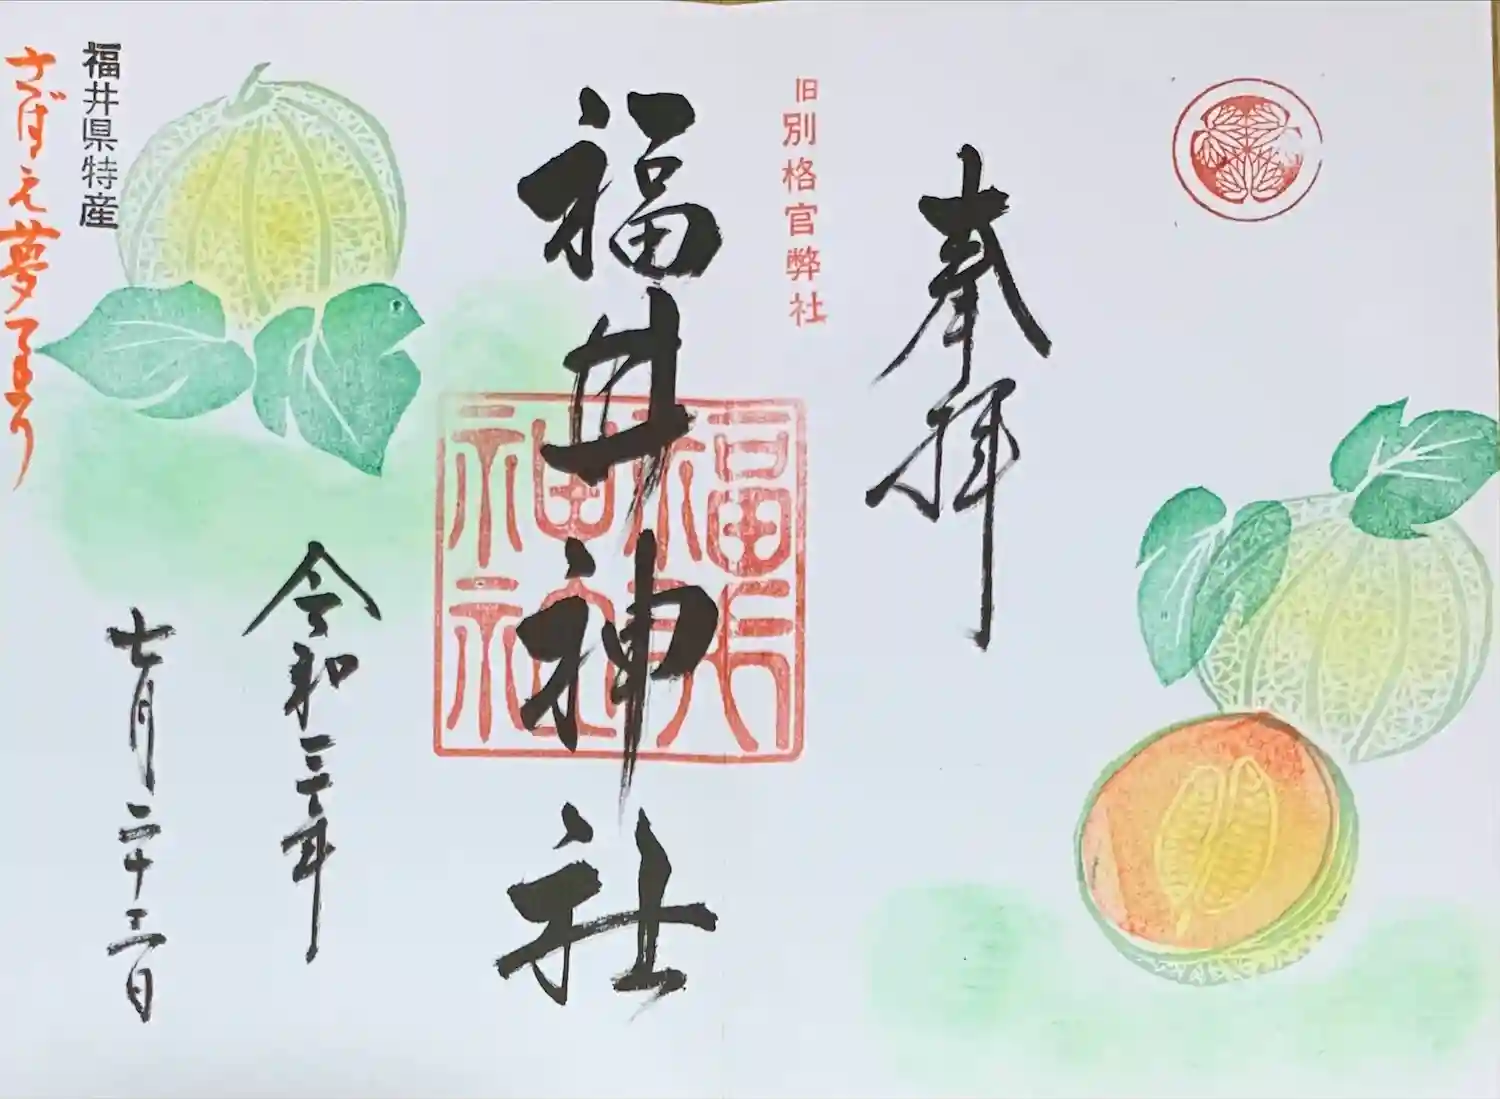 奉拝
旧別格官弊社
福井神社
福井神社
令和三年
七月二十三日
福井県特産
さばえ夢てまり